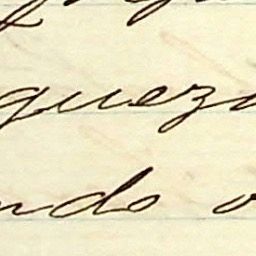 queza
ndo o